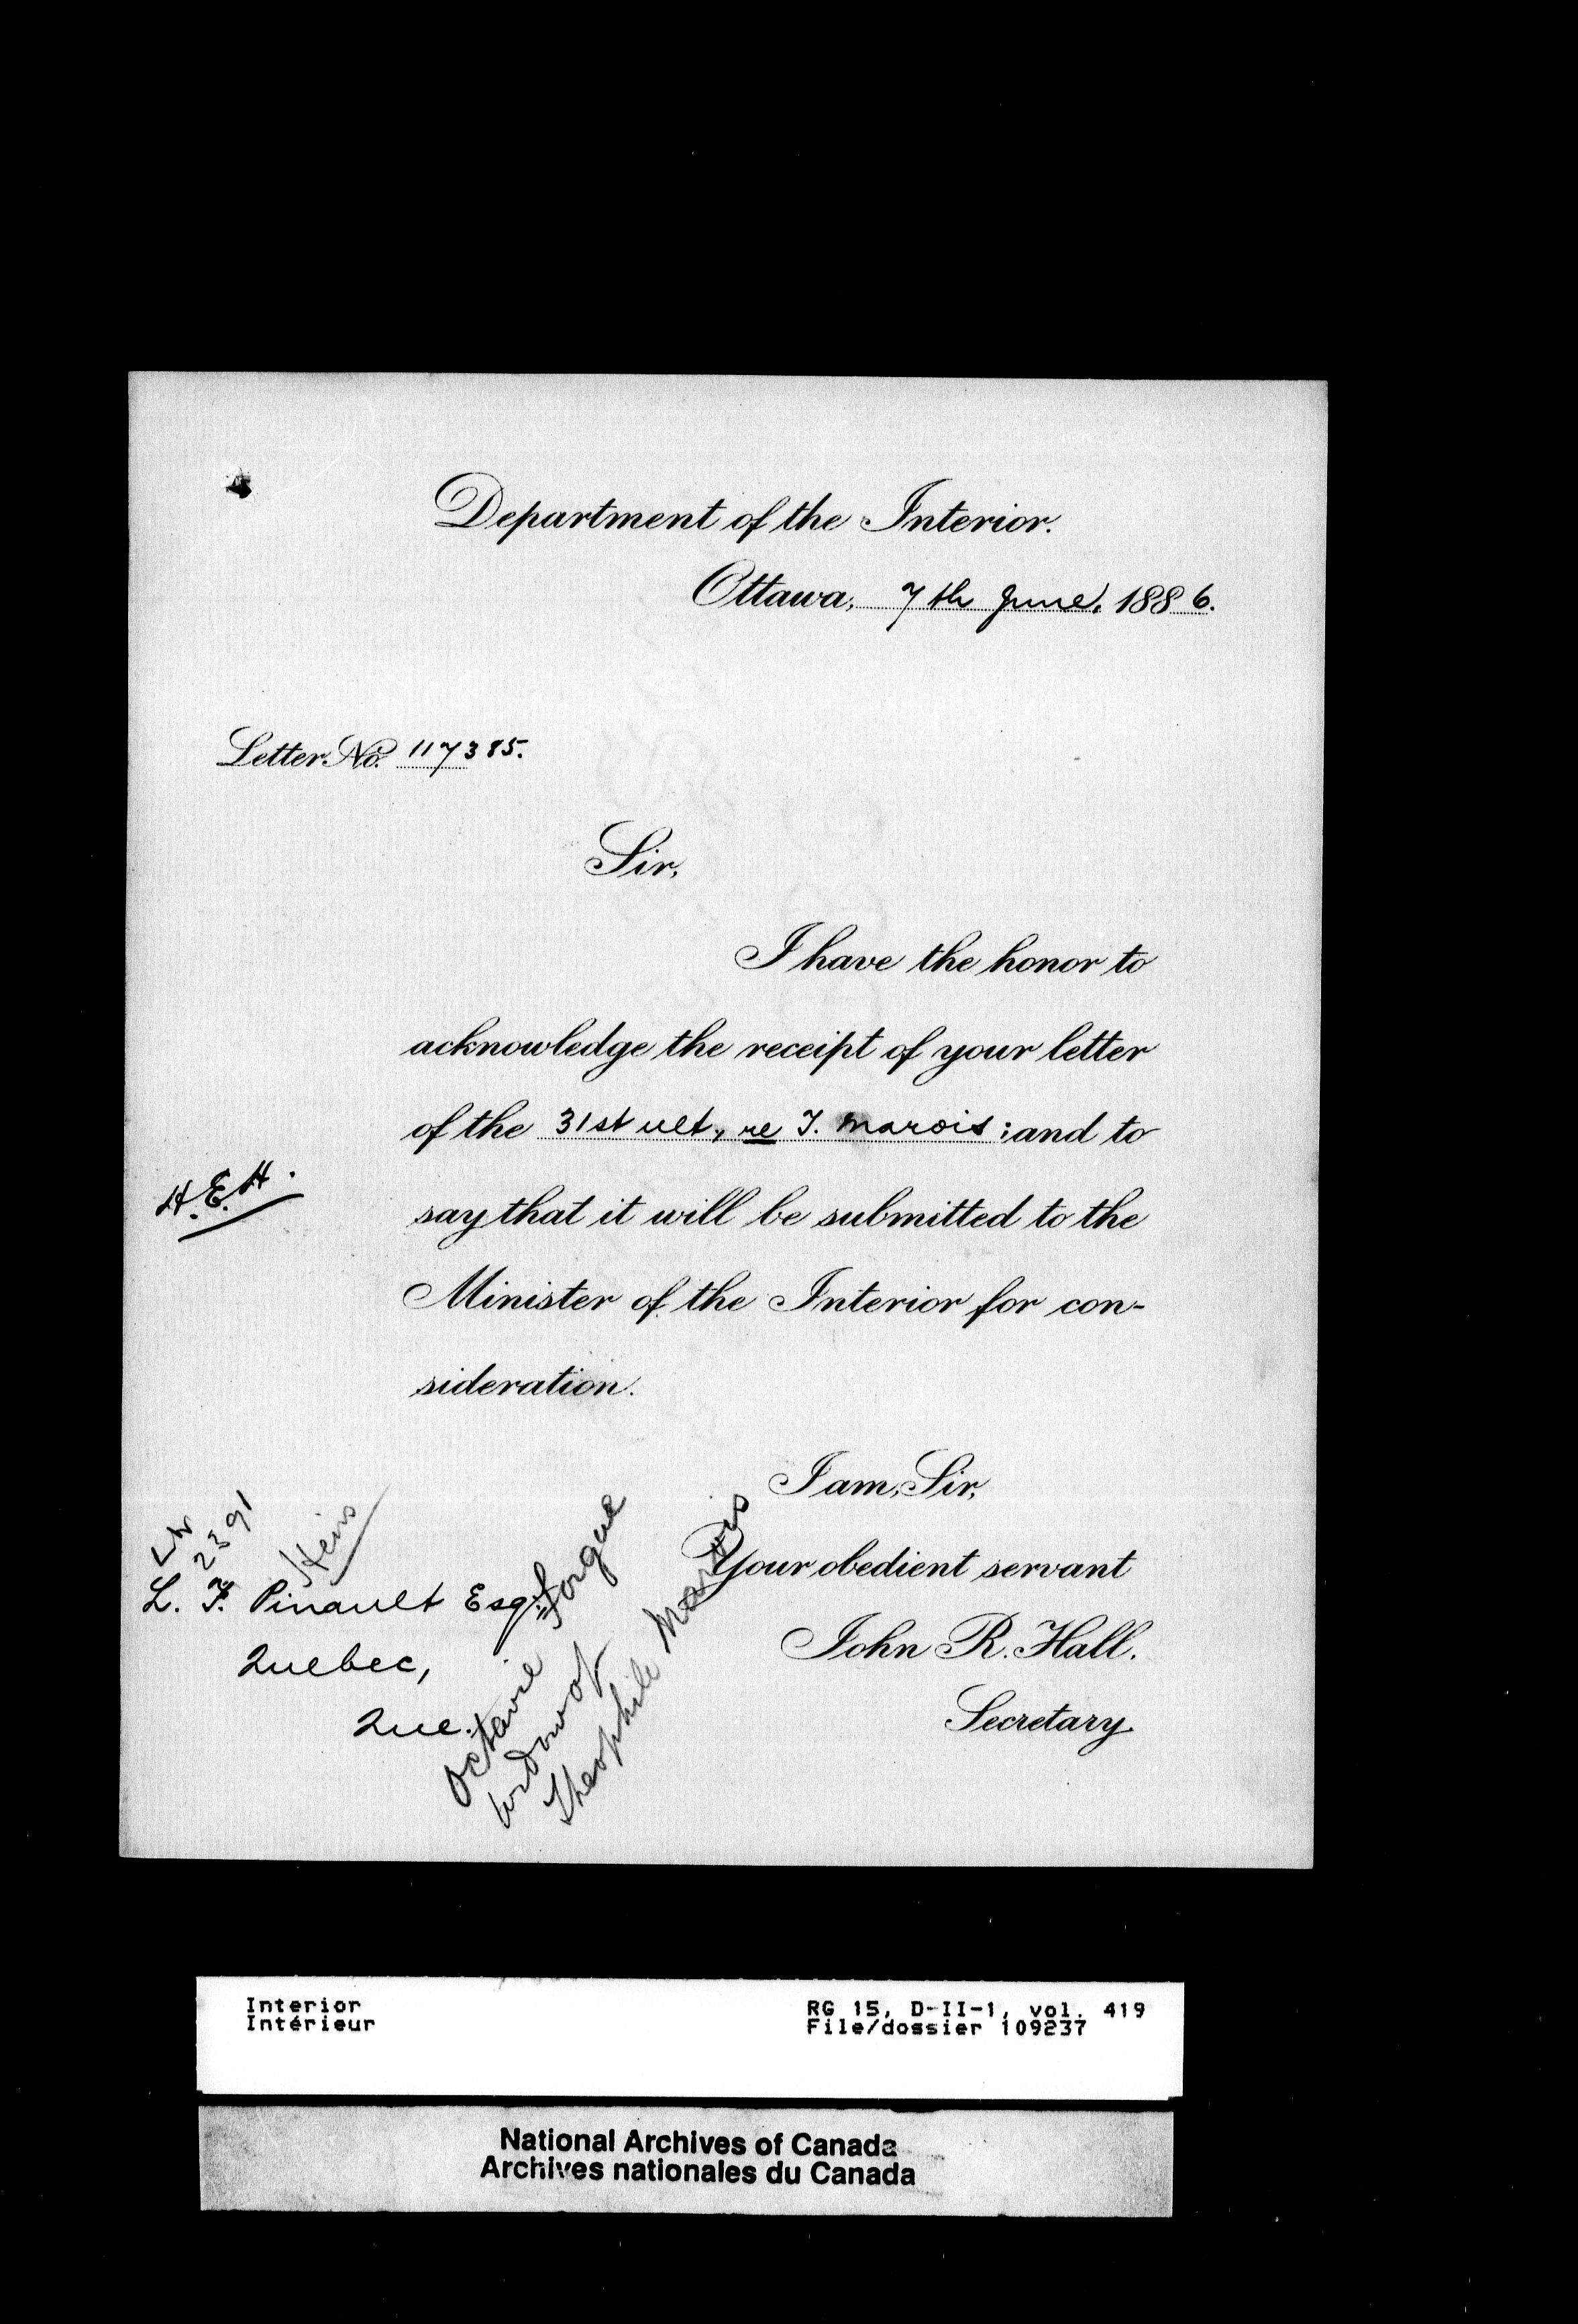 Department of the Interior.
Ottawa, 7th June, 1886.
Letter No. 117385.
Sir,
I have the honor to
acknowledge the receipt of your letter
of the 31st ult., re T. Marois; and to
say that it will be submitted to the
H.E.H.
Minister of the Interior for con-
sideration.
I am, Sir,
Your obedient servant
John R. Hall.
Secretary
2391
Heirs
L. F. Pinault Esq.
Quebec,
Que.
Octavie Forgue
widow of
Theophile Marois
Interior
Intérieur
RG 15, D-II-1, vol. 419
File/dossier 109237
National Archives of Canada
Archives nationales du Canada